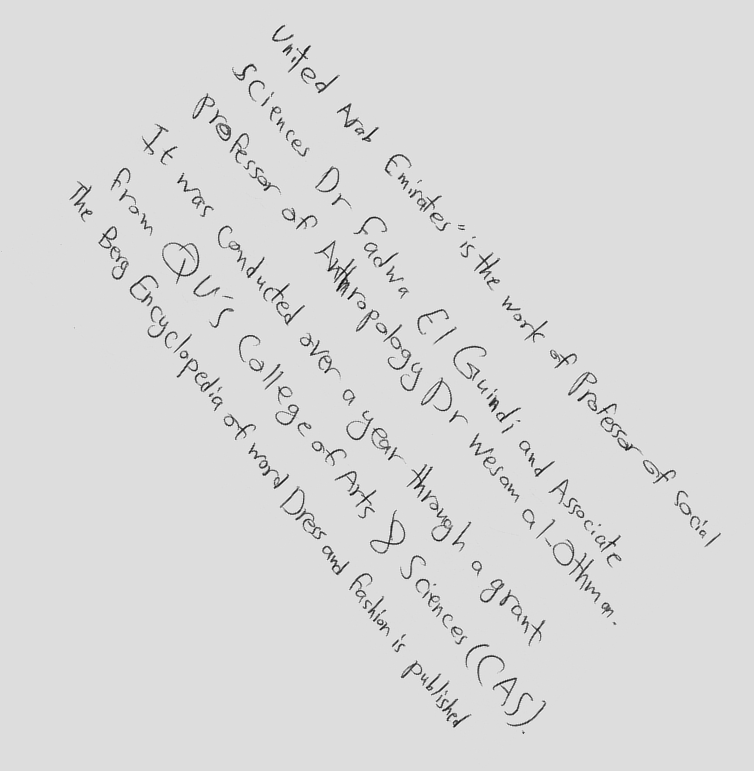 United Arab Emirates" is the work of Professor of Social
Sciences Dr Fadwa El Guindi and Associate
professor of Anthropology Dr Wesam al-Othman.
It was conducted over a year through a grant
from QU'S College of Arts & Sciences (CAS).
The Berg Encyclopedia of word Dress and Fashion is published